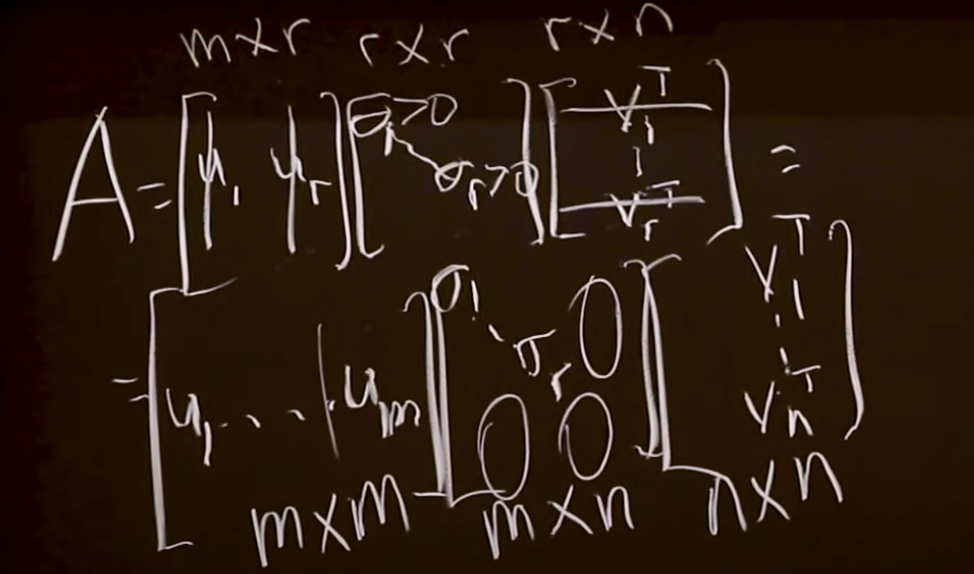 m×r r×r r×n
A = [u₁ uᵣ] [σ₁>0 σᵣ>0] [v₁ᵀ ⋮ vᵣᵀ] =
= [u₁ ... uₘ] [σ₁ ⋱ σᵣ 0 0 0] [v₁ᵀ ⋮ vₙᵀ]
m×m m×n n×n